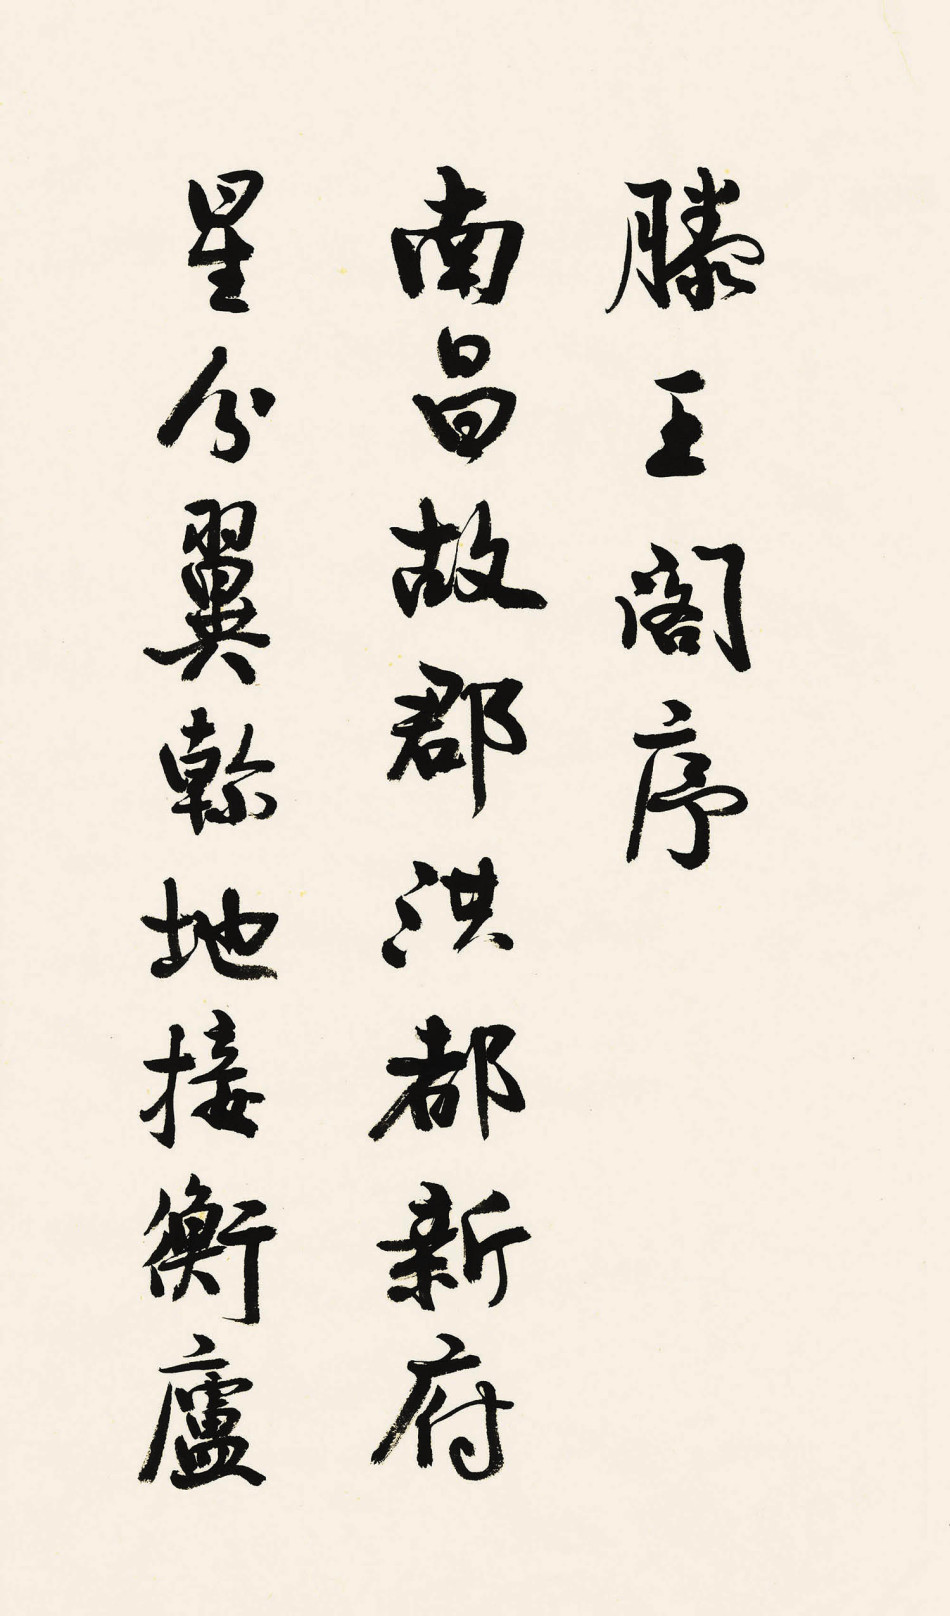 滕王阁序
南昌故郡洪都新府
星分翼轸地接衡廬